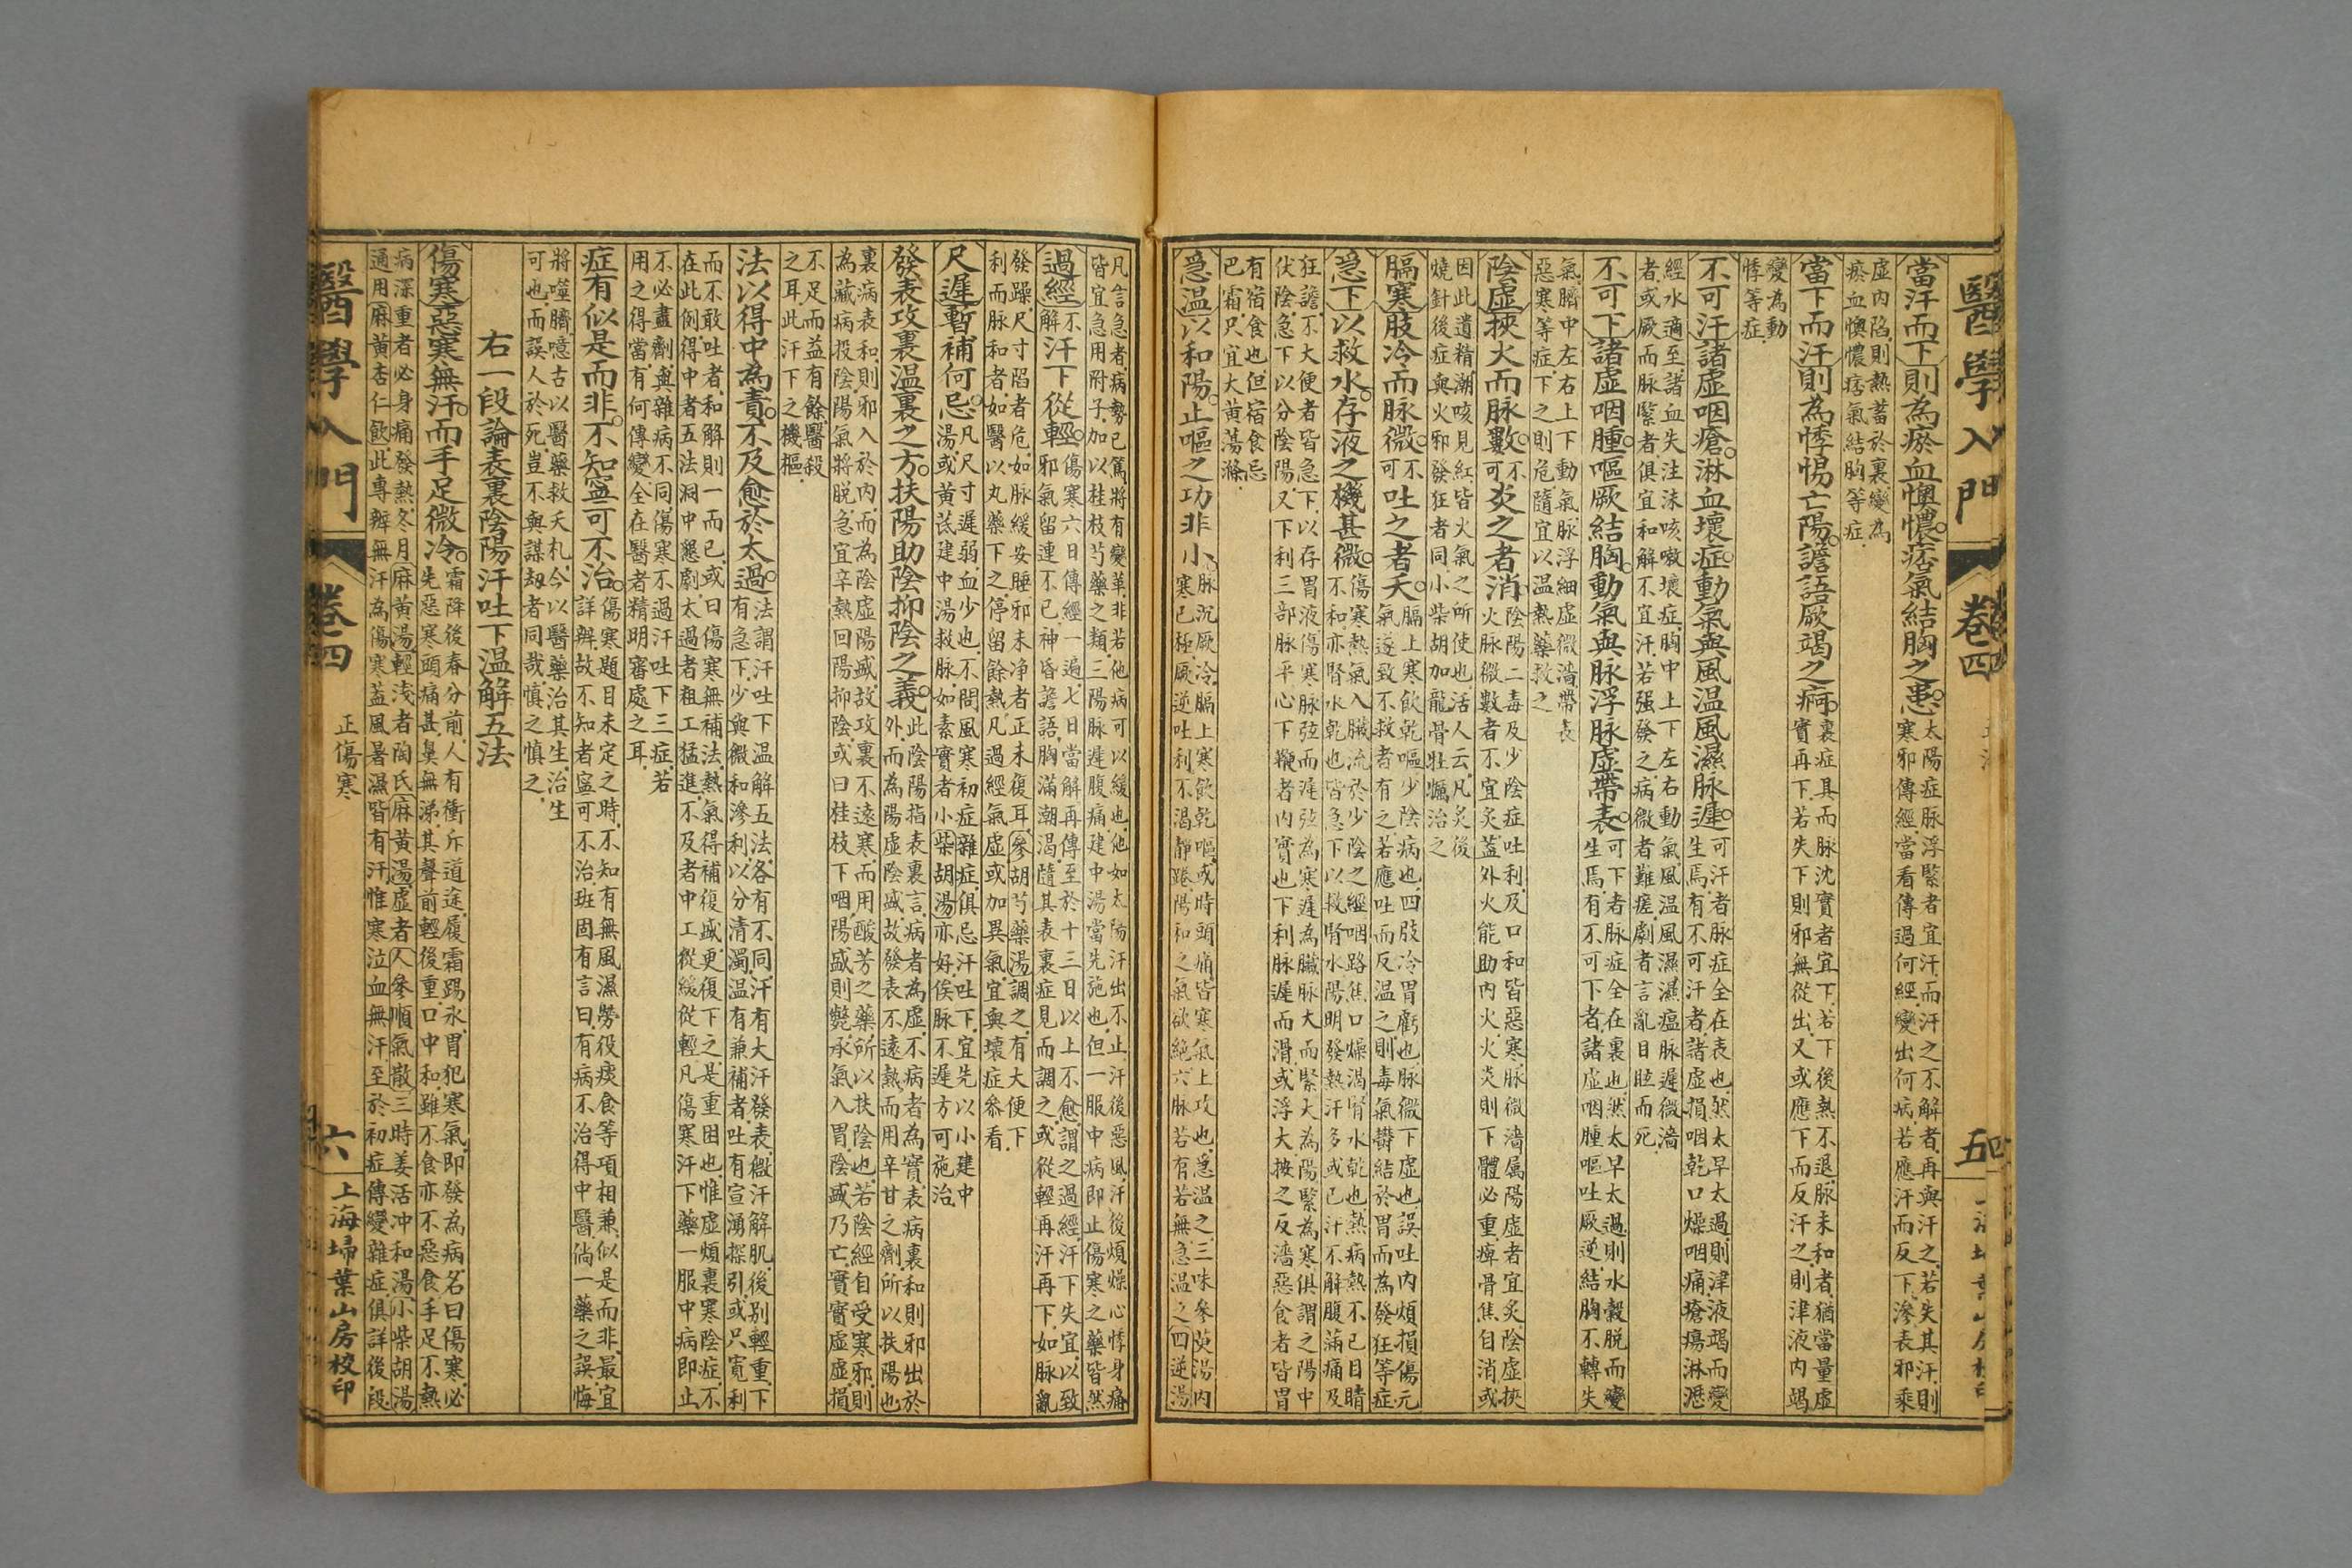 醫學入門 卷四 五
當汗而下則為瘀血懊憹痞氣結胸之患太陽症脉浮緊者宜汗而汗之不解者再與汗之若失其汗則
寒邪傳經當看傳過何經變出何病若應汗而反下滲表邪乘
虛內陷則熱蓄於裏變為
瘀血懊憹痞氣結胸等症
當下而汗則為悸惕亡陽譫語厥竭之病裏症具而脉沈實者宜下若下後熱不退脉未和者猶當量虛
實再下若失下則邪無從出又或應下而反汗之則津液內竭
變為動
悸等症
不可汗諸虛咽瘡淋血壞症動氣與風温風濕脉遲可汗者脉症全在表也然太早太過則津液竭而變
生焉有不可汗者諸虛損咽乾口燥咽痛瘡瘍淋瀝
經水適至諸血失注沫咳嗽壞症胸中上下左右動氣風温風濕濕瘟脉遲微濇
者或厥而脉緊者俱宜和解不宜汗若强發之病微者難瘥劇者言亂目眩而死
不可下諸虛咽腫嘔厥結胸動氣與脉浮脉虛帶表可下者脉症全在裏也然太早太過則水穀脱而變
生焉有不可下者諸虛咽腫嘔吐厥逆結胸不轉失
氣臍中左右上下動氣脉浮細虛微濇帶表
惡寒等症下之則危隨宜以温熱藥救之
陰虛挾火而脉數不可灸之者消陰陽二毒及少陰症吐利及口和皆惡寒脉微濇属陽虛者宜灸陰虛挾
火脉微數者不宜灸蓋外火能助內火火炎則下體必重痺骨焦自消或
因此遺精潮咳見紅皆火氣之所使也活人云凡灸後
燒針後症與火邪發狂者同小柴胡加龍骨牡蠣治之
膈寒肢冷而脉微不可吐之者夭膈上寒飲乾嘔少陰病也四肢冷胃虧也脉微下虛也誤吐內煩損傷元
氣遂致不救者有之若應吐而反温之則毒氣鬱結於胃而為發狂等症
急下以救水存液之機甚微傷寒熱氣入臟流於少陰之經咽路焦口燥渴腎水乾也熱病熱不已目睛
不和亦腎水乾也皆急下以救腎水陽明發熱汗多或已汗不解腹滿痛及
狂譫不大便者皆急下以存胃液傷寒脉弦而遲弦為寒遲為臟脉大而緊大為陽緊為寒俱謂之陽中
伏陰急下以分陰陽又下利三部脉平心下鞕者內實也下利脉遲而滑或浮大按之反濇惡食者皆胃
有宿食也但宿食忌
巴霜只宜大黃蕩滌
急温以和陽止嘔之功非小脉沉厥冷膈上寒飲乾嘔或時頭痛皆寒氣上攻也急温之三味參萸湯內
寒已極厥逆吐利不渴靜踡陽和之氣欲絶六脉若有若無急温之四逆湯
凡言急者病勢已篤將有變革非若他病可以緩也他如太陽汗出不止汗後惡風汗後煩燥心悸身痛
皆宜急用附子加以桂枝芍藥之類三陽脉遲腹痛建中湯當先施也但一服中病即止傷寒之藥皆然
過經不解汗下從輕傷寒六日傳經一遍七日當解再傳至於十三日以上不愈謂之過經汗下失宜以致
邪氣留連不已神昏譫語胸滿潮渴隨其表裏症見而調之或從輕再汗再下如脉亂
發躁尺寸陷者危如脉緩安睡邪未净者正未復耳參胡芍藥湯調之有大便下
利而脉和者如醫以丸藥下之停留餘熱凡過經氣虛或加異氣宜與壞症叅看
尺遲暫補何忌凡尺寸遲弱血少也不問風寒初症雜症俱忌汗吐下宜先以小建中
湯或黃芪建中湯救脉如素實者小柴胡湯亦好俟脉不遲方可施治
發表攻裏温裏之方扶陽助陰抑陰之義此陰陽指表裏言病者為虛不病者為實表病裏和則邪出於
外而為陽虛陰盛故發表不遠熱而用辛甘之劑所以扶陽也
裏病表和則邪入於內而為陰虛陽盛故攻裏不遠寒而用酸苦之藥所以扶陰也若陰經自受寒邪則
為藏病投陰陽氣將脱急宜辛熱回陽抑陰或曰桂枝下咽陽盛則斃承氣入胃陰盛乃亡實實虛虛損
不足而益有餘醫殺
之耳此汗下之機樞
法以得中為貴不及愈於太過法謂汗吐下温解五法各有不同汗有大汗發表微汗解肌後别輕重下
有急下少與微和滲利以分清濁温有兼補者吐有宣湧探引或只寬利
而不敢吐者和解則一而已或曰傷寒無補法熱氣得補復盛更復下之是重困也惟虛煩裏寒陰症不
在此例得中者五法洞中懇劇太過者粗工猛進不及者中工從緩從輕凡傷寒汗下藥一服中病即止
不必盡劑與雜病不同傷寒不過汗吐下三症若
用之得當有何傳變全在醫者精明審處之耳
症有似是而非不知寧可不治傷寒題目未定之時不知有無風濕勞役痰食等項相兼似是而非最宜
詳辨故不知者寧可不治班固有言曰有病不治得中醫倘一藥之誤悔
將噬臍噫古以醫藥救夭札今以醫藥治其生治生
可也而誤人於死豈不與謀刼者同哉慎之慎之
右一段論表裏陰陽汗吐下温解五法
傷寒惡寒無汗而手足微冷霜降後春分前人有衝斥道途履霜踢氷胃犯寒氣即發為病名曰傷寒必
先惡寒頭痛甚臭無涕其聲前輕後重口中和雖不食亦不惡食手足不熱
病深重者必身痛發熱冬月麻黃湯輕淺者陶氏麻黃湯虛者人參順氣散三時羌活冲和湯小柴胡湯
通用麻黃杏仁飲此專辨無汗為傷寒蓋風暑濕皆有汗惟寒泣血無汗至於初症傳變雜症俱詳後段
醫學入門 卷四 正傷寒 六 上海埽葉山房校印